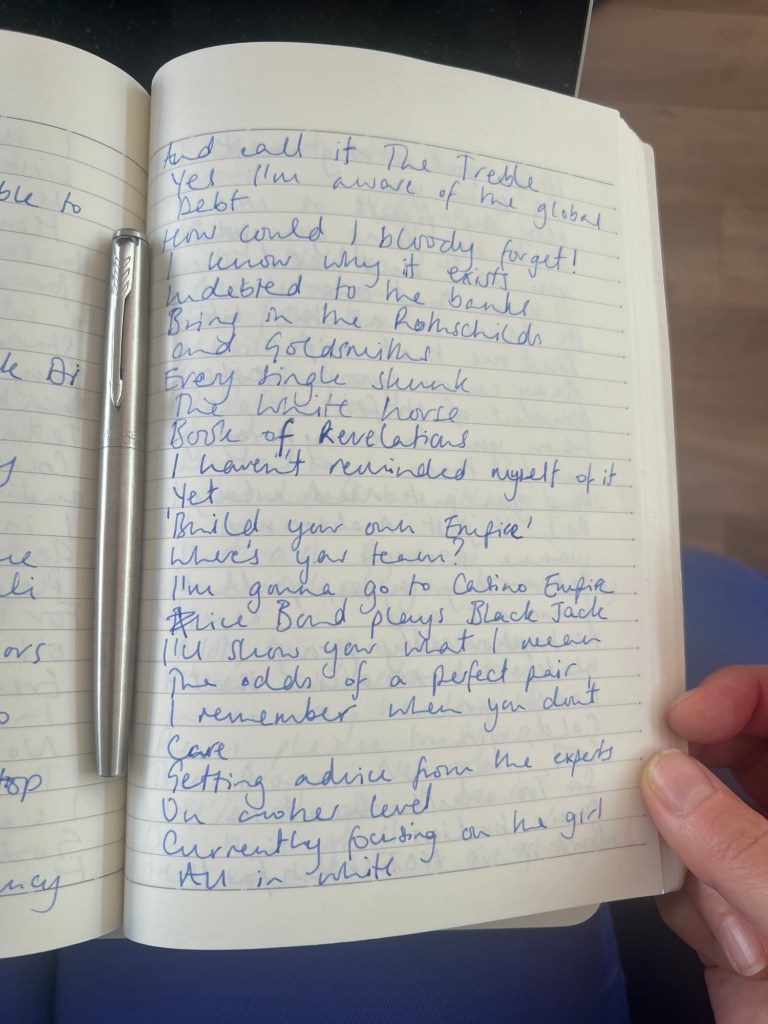 ble to
And call it The Treble
Yes I'm aware of the global
Debt
How could I bloody forget!
I know why it exists
Indebted to the banks
Bring in the Rothschilds
and Goldsmiths
Every single skunk
The White horse
Book of Revelations
I haven't reminded myself of it
Yet
'Build your own Empire'
Where's your team?
I'm gonna go to Casino Empire
Alice Bond plays Black Jack
I'll show you what I mean
The odds of a perfect pair
I remember when you don't
Care
Getting advice from the experts
On another level
Currently focusing on the girl
All in white